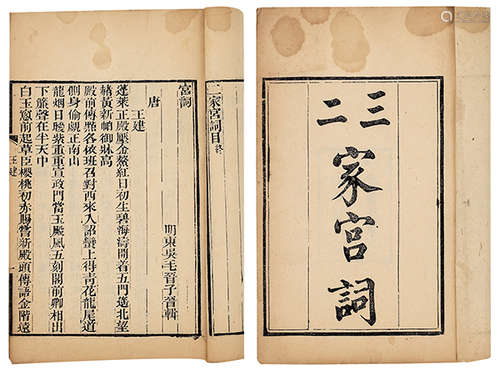 三二
家宮詞
二家宮詞目終
宮詞
明東吳毛晉子晉輯
唐
王建
蓬萊正殿壓金鰲紅日初生碧海濤閒着五門遙北望
赭黃新帕御牀高
殿前傳點各依班召對西來入詔蠻上得青花龍尾道
側身偷覷正南山
龍烟日暖紫重重宣政門當玉殿風五刻閣前卿相出
下簾聲在半天中
白玉窻前起草臣櫻桃初赤賜嘗新殿頭傳語金階遠
王建